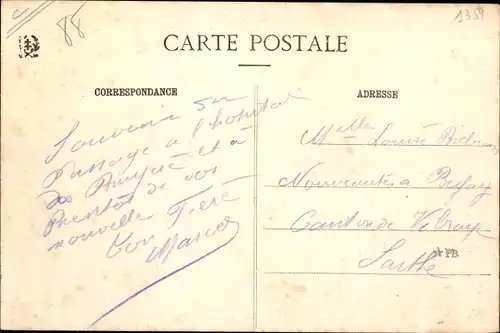 88
1359
CARTE POSTALE
CORRESPONDANCE
ADRESSE
Souvenir du
Passage a l'hopital
de et a
Bientot de vos
nouvelles
Ton
Marcel
Melle Louise
Nouveautés a
Canton de Vibraye
Sarthe
PB